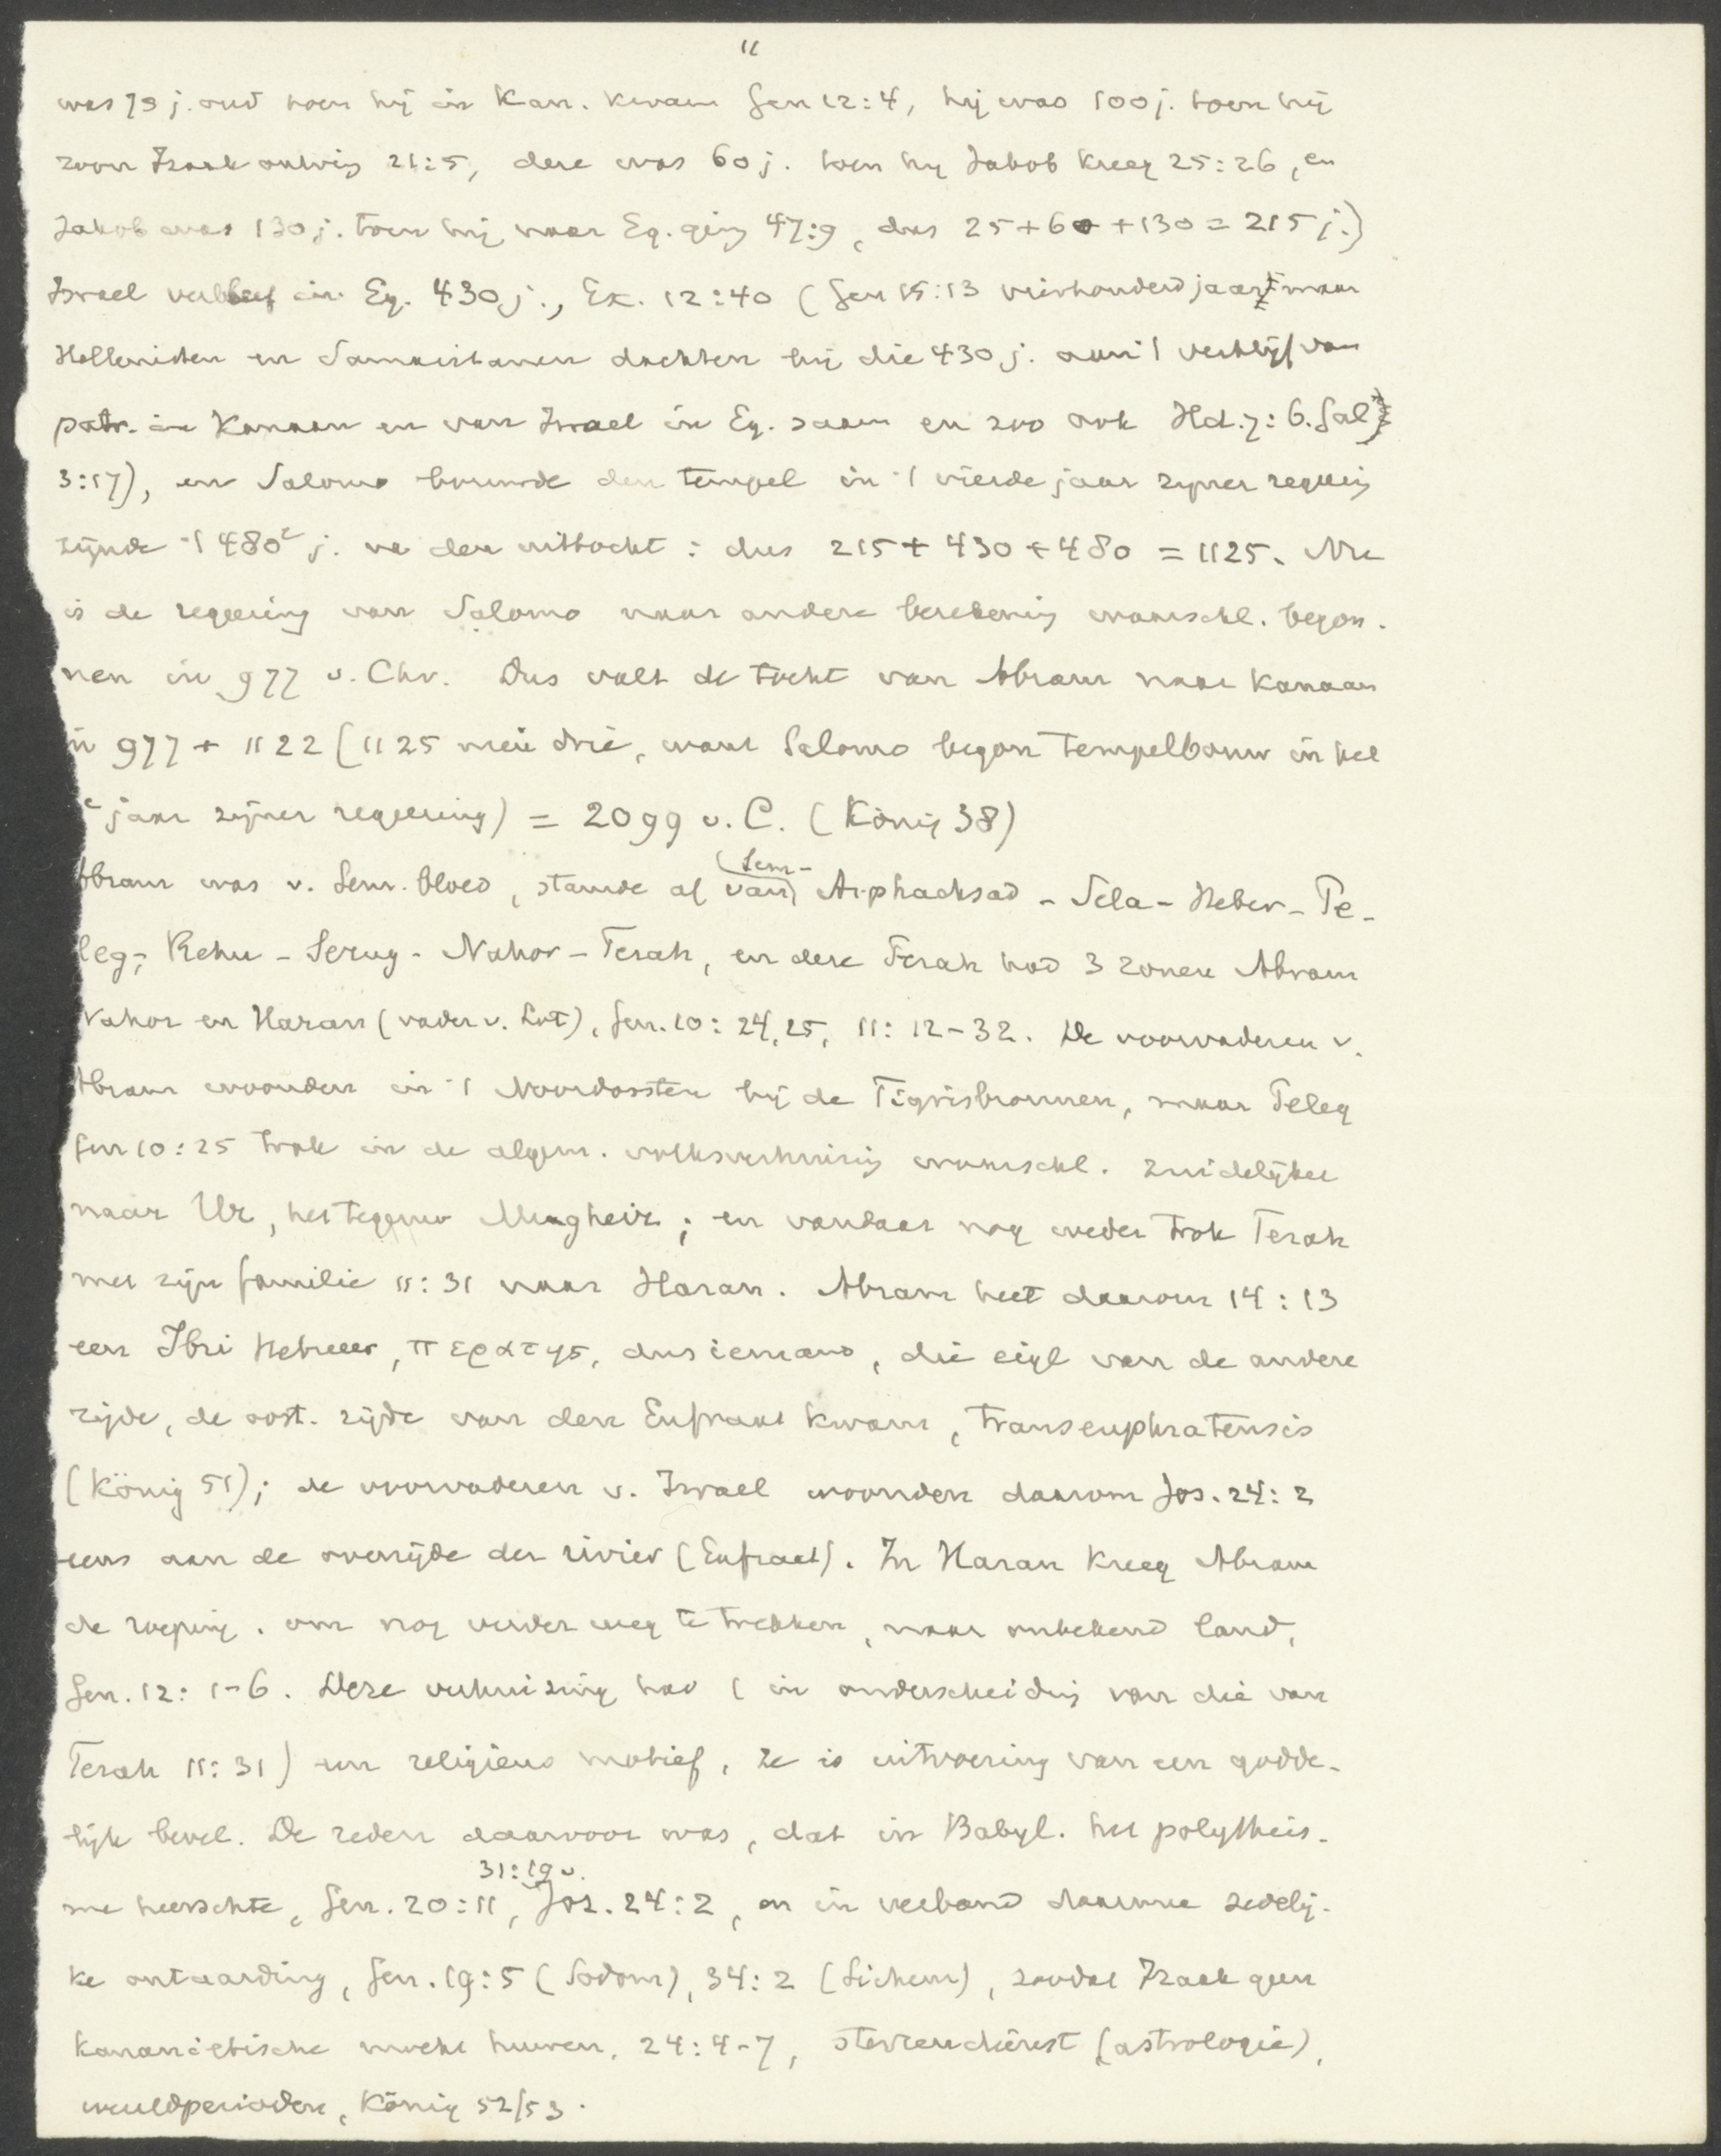 11
was 75 j. oud toen hij in Kan. kwam Gen 12:4, hij was 100 j. toen hij
zoon Izaak ontving 21:5, deze was 60 j. toen hij Jakob kreeg 25:26, en
Jakob was 130 j. toen hij naar Eg. ging 47:9, dus 25+60+130=215 j.)
Israel verbleef in Eg. 430 j., Ex. 12:40 (Gen 15:13 vierhonderd jaar, maar
Hellenisten en Samaritanen dachten bij die 430 j. aan 't verblijf van
patr. in Kanaan en van Israel in Eg. saam en zoo ook Hd. 7:6. Gal
3:17), en Salomo bouwde den tempel in 't vierde jaar zijner regeering
zijnde 't 480e j. na den uittocht: dus 215+430+480=1125. Nu
is de regeering van Salomo naar andere berekening waarschl. begon-
nen in 977 v. Chr. Dus valt de tocht van Abram naar Kanaan
in 977 + 1122 (1125 min drie, want Salomo begon tempelbouw in het
e jaar zijner regeering) = 2099 v. C. (König 38)
Abram was v. Sem. bloed, stamde af van (Sem- Arphachsad - Sela - Heber - Pe-
leg, Rehu - Serug - Nahor - Terah, en deze Terah had 3 zonen Abram
Nahor en Haran (vader v. Lot), Gen. 10:24,25, 11:12-32. De voorvaderen v.
Abram woonden in 't Noordoosten bij de Tigrisbronnen, maar Peleg
Gen 10:25 trok in de algem. volksverhuizing waarschl. zuidelijker
naar Ur, het tegenw Mugheir; en vandaar nog weder trok Terah
met zijn familie 11:31 naar Haran. Abram heet daarom 14:13
een Ibri Hebreer, περατης, dus iemand, die eigl van de andere
zijde, de oost. zijde van den Eufraat kwam, transeuphratensis
(König 51); de voorvaderen v. Israel woonden daarom Jos. 24:2
eens aan de overzijde der rivier (Eufraat). In Haran kreeg Abram
de roeping. om nog verder weg te trekken, naar onbekend land,
Gen. 12:1-6. Deze verhuizing had (in onderscheiding van die van
Terah 11:31) een religieus motief, ze is uitvoering van een godde-
lijk bevel. De reden daarvoor was, dat in Babyl. het polytheis-
me heerschte, Gen. 20:11, 31:19v. Jos. 24:2, en in verband daarmee zedelij-
ke ontaarding, Gen. 19:5 (Sodom), 34:2 (Sichem), zoodat Izaak geen
kanaanietische mocht huwen, 24:4-7, sterrendienst (astrologie),
wereldperioden, König 52/53.